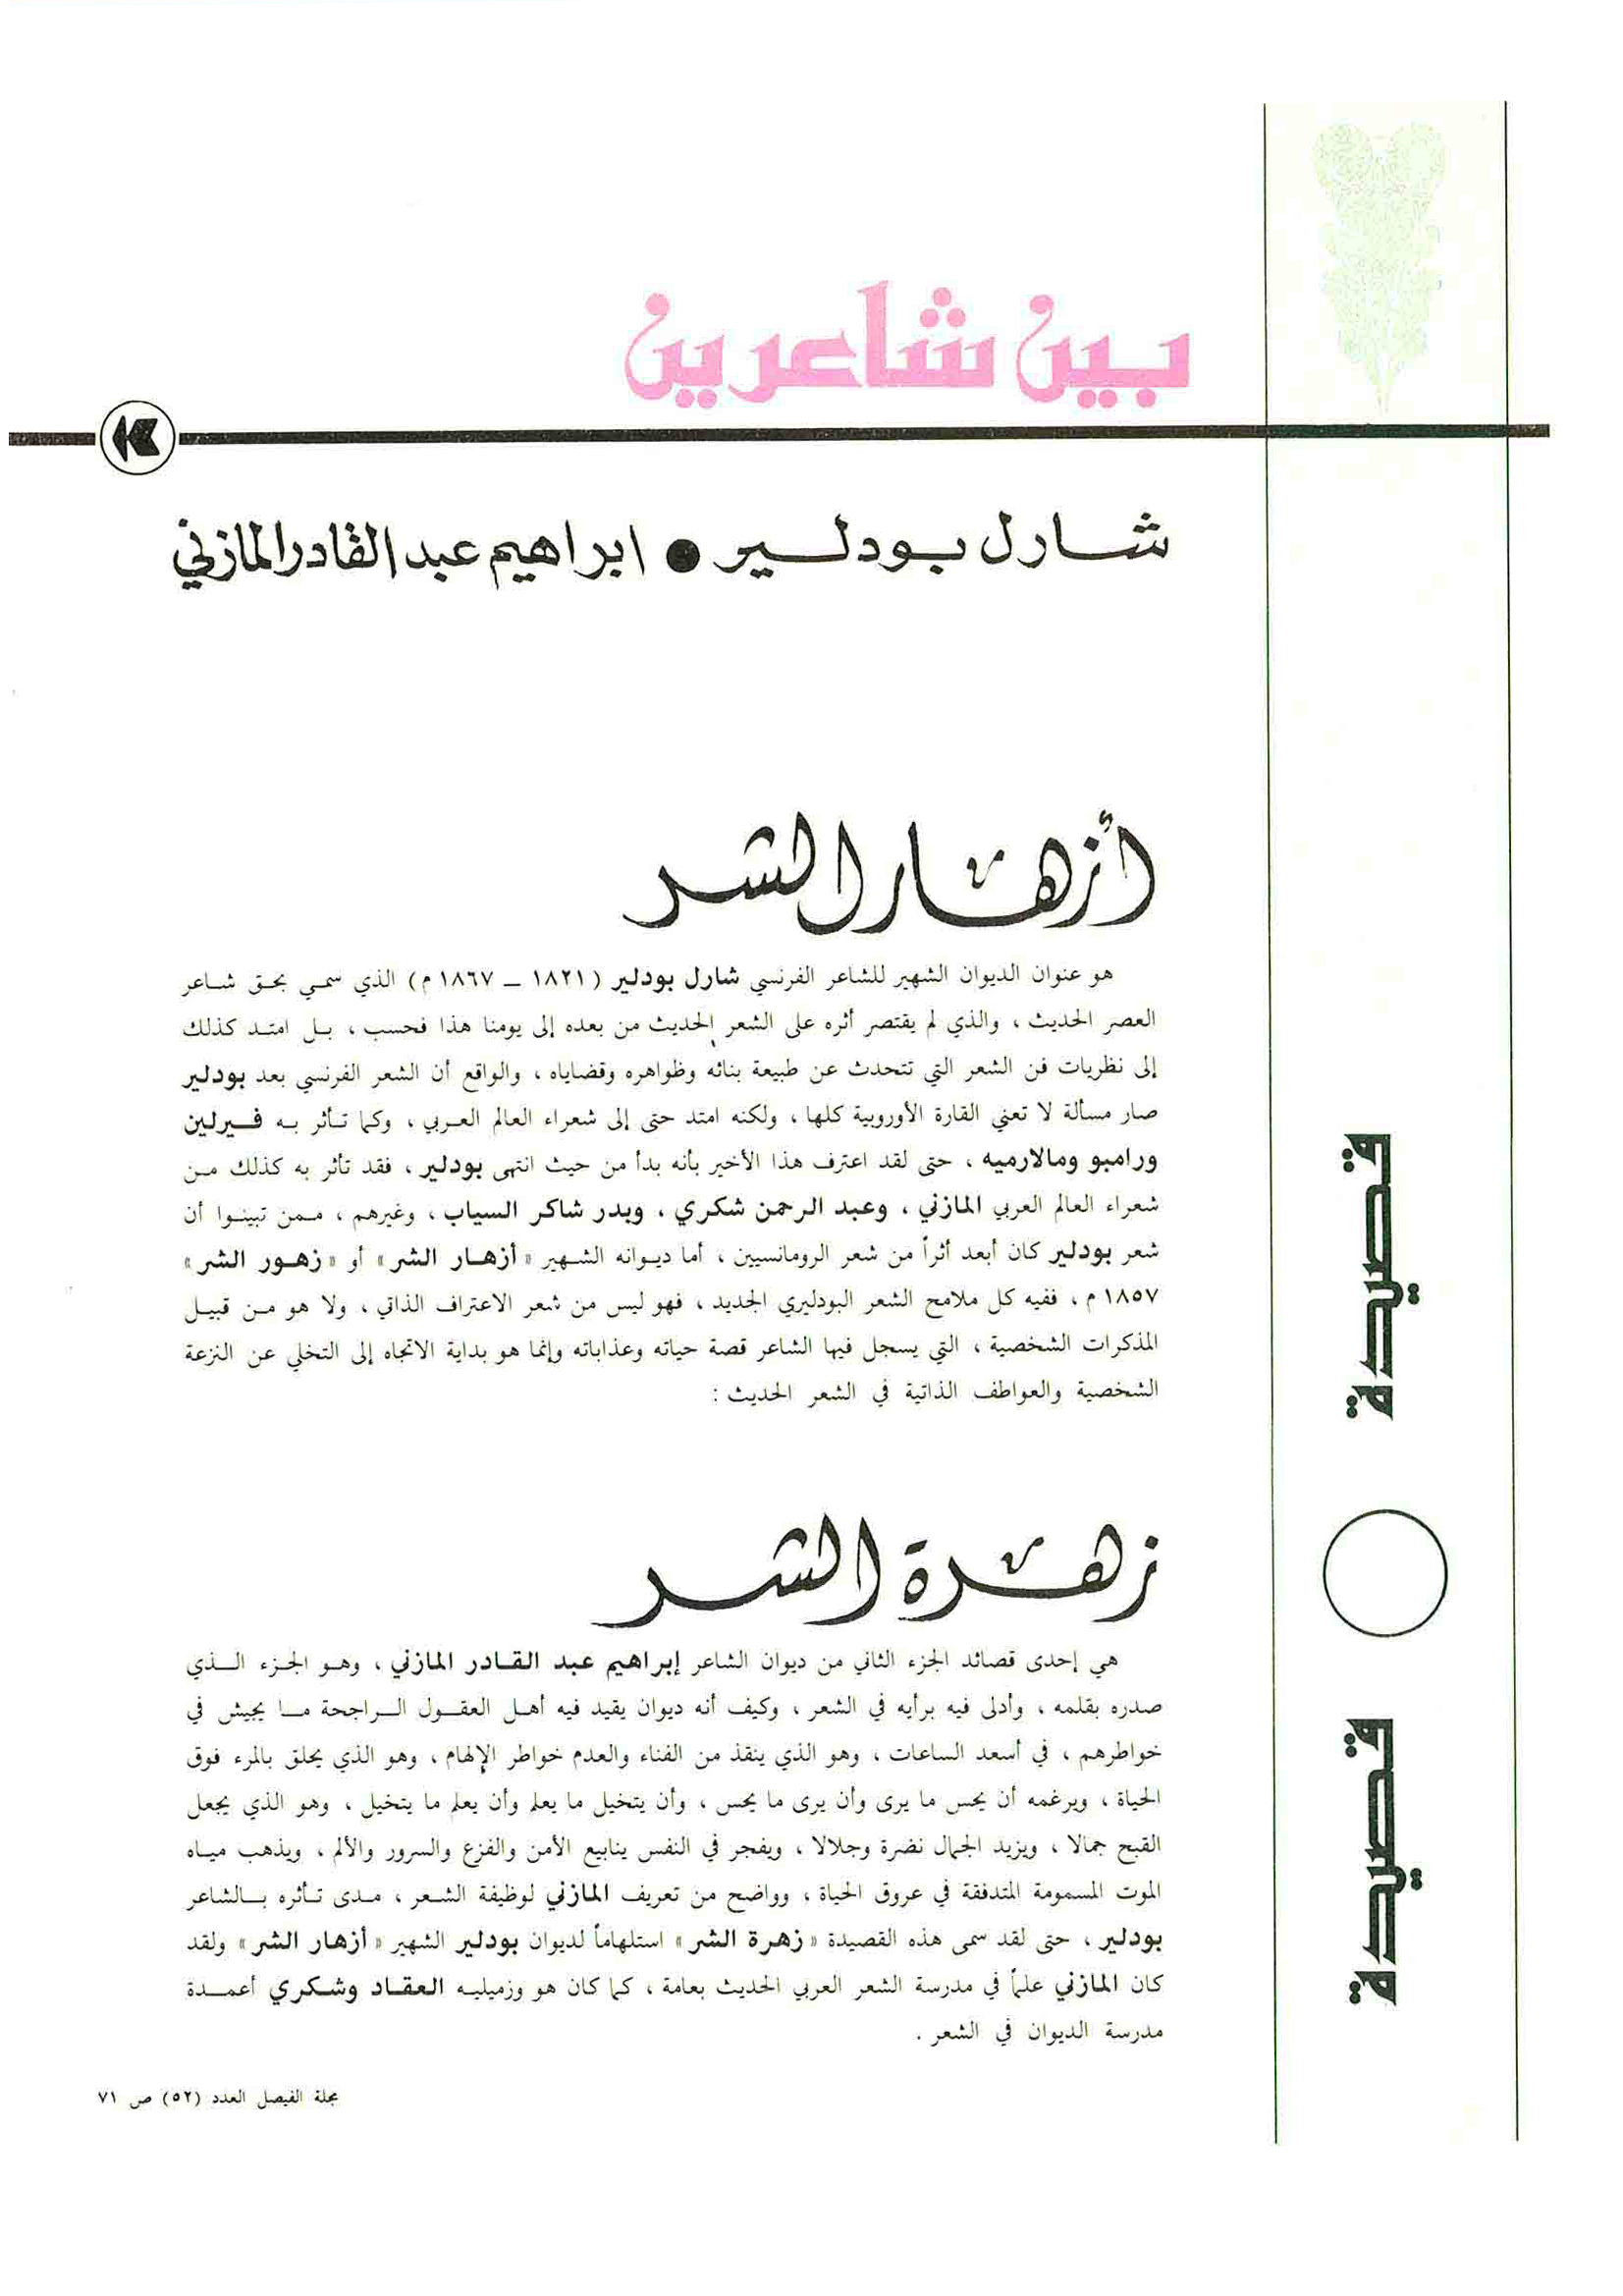 بين شاعرين
شارل بودلير ● ابراهيم عبد القادر المازني
أزهار الشر
هو عنوان الديوان الشهير للشاعر الفرنسي شارل بودلير (١٨٢١ – ١٨٦٧ م) الذي سمي بحق شاعر
العصر الحديث ، والذي لم يقتصر أثره على الشعر الحديث من بعده إلى يومنا هذا فحسب ، بل امتد كذلك
إلى نظريات فن الشعر التي تتحدث عن طبيعة بنائه وظواهره وقضاياه ، والواقع أن الشعر الفرنسي بعد بودلير
صار مسألة لا تعني القارة الأوروبية كلها ، ولكنه امتد حتى إلى شعراء العالم العربي ، وكما تأثر به فيرلين
ورامبو ومالارميه ، حتى لقد اعترف هذا الأخير بأنه بدأ من حيث انتهى بودلير ، فقد تأثر به كذلك من
شعراء العالم العربي المازني ، وعبد الرحمن شكري ، وبدر شاكر السياب ، وغيرهم ، ممن تبينوا أن
شعر بودلير كان أبعد أثراً من شعر الرومانسيين ، أما ديوانه الشهير « أزهار الشر » أو « زهور الشر »
١٨٥٧ م ، ففيه كل ملامح الشعر البودليري الجديد ، فهو ليس من شعر الاعتراف الذاتي ، ولا هو من قبيل
المذكرات الشخصية ، التي يسجل فيها الشاعر قصة حياته وعذاباته وإنما هو بداية الاتجاه إلى التخلي عن النزعة
الشخصية والعواطف الذاتية في الشعر الحديث :
زهرة الشر
هي إحدى قصائد الجزء الثاني من ديوان الشاعر إبراهيم عبد القادر المازني ، وهو الجزء الذي
صدره بقلمه ، وأدلى فيه برأيه في الشعر ، وكيف أنه ديوان يقيد فيه أهل العقول الراجحة ما يجيش في
خواطرهم ، في أسعد الساعات ، وهو الذي ينقذ من الفناء والعدم خواطر الإلهام ، وهو الذي يحلق بالمرء فوق
الحياة ، ويرغمه أن يحس ما يرى وأن يرى ما يحس ، وأن يتخيل ما يعلم وأن يعلم ما يتخيل ، وهو الذي يجعل
القبح جمالا ، ويزيد الجمال نضرة وجلالا ، ويفجر في النفس ينابيع الأمن والفزع والسرور والألم ، ويذهب مياه
الموت المسمومة المتدفقة في عروق الحياة ، وواضح من تعريف المازني لوظيفة الشعر ، مدى تأثره بالشاعر
بودلير ، حتى لقد سمى هذه القصيدة « زهرة الشر » استلهاماً لديوان بودلير الشهير « أزهار الشر » ولقد
كان المازني علماً في مدرسة الشعر العربي الحديث بعامة ، كما كان هو وزميليه العقاد وشكري أعمدة
مدرسة الديوان في الشعر .
قصيدة
قصيدة
مجلة الفيصل العدد (٥٢) ص ٧١